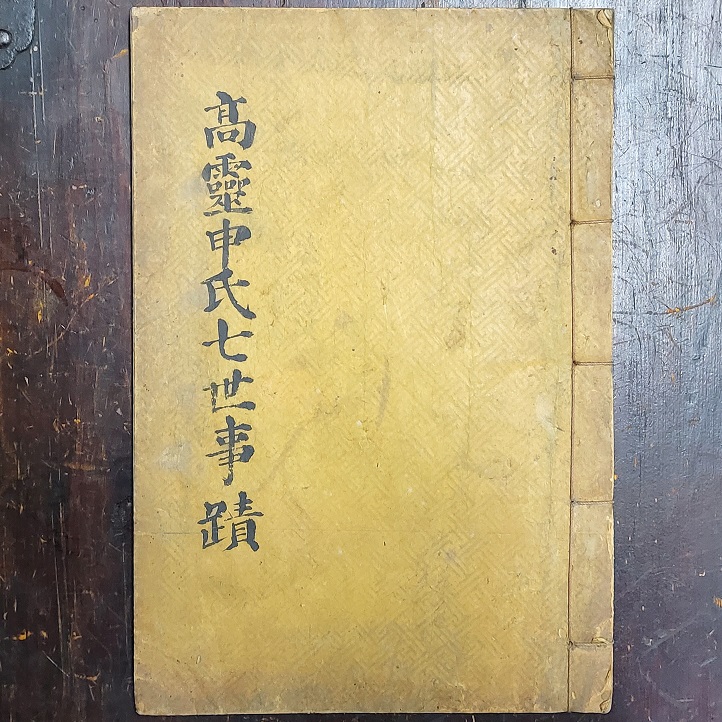 高靈申氏七世事蹟